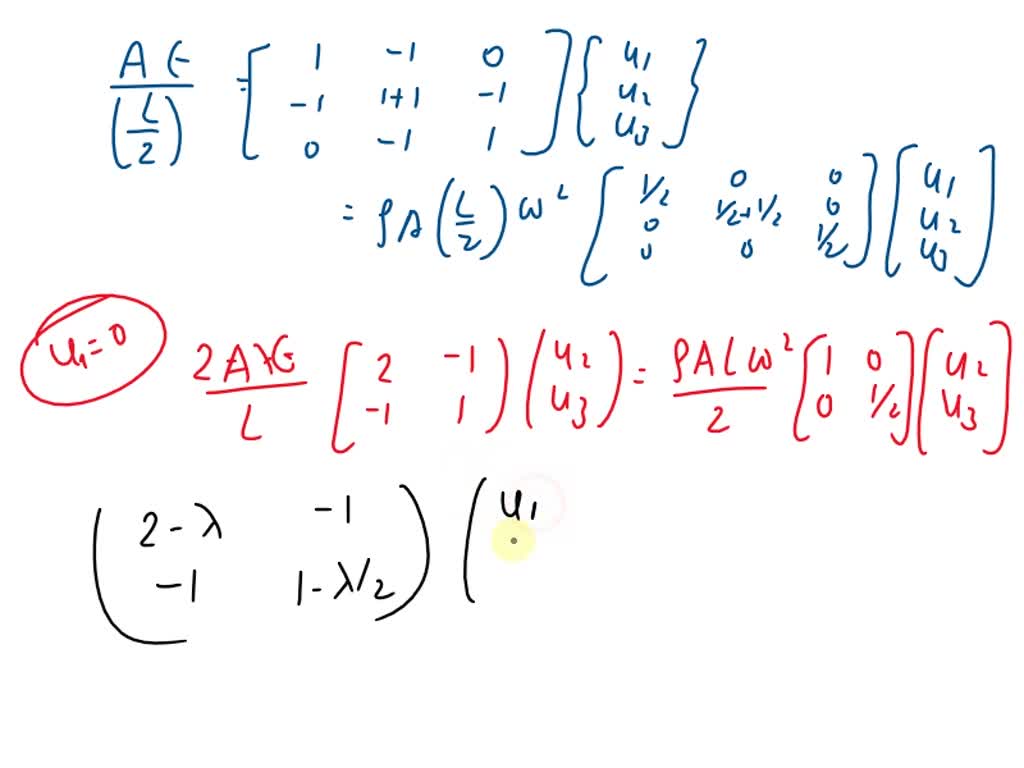 AE/(L/2) = [1 -1 0; -1 1+1 -1; 0 -1 1] {u1; u2; u3}
= ρA(L/2)ω² [1/2 0 0; 0 1/2+1/2 0; 0 0 1/2] [u1; u2; u3]
u1=0 2A/L [2 -1; -1 1) (u2; u3) = ρALω²/2 [1 0; 0 1/2] [u2; u3]
(2-λ -1; -1 1-λ/2) (u1